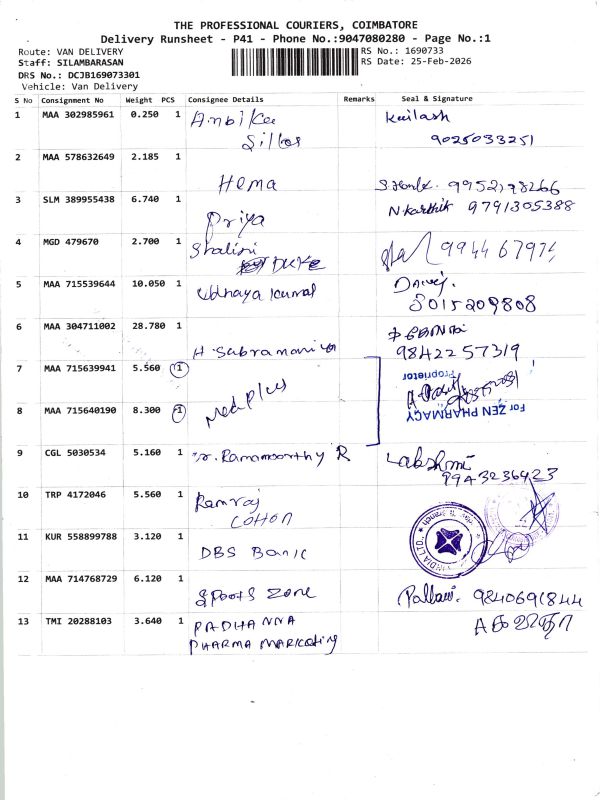 THE PROFESSIONAL COURIERS, COIMBATORE
Delivery Runsheet - P41 - Phone No.:9047080280 - Page No.:1
Route: VAN DELIVERY
RS No.: 1690733
Staff: SILAMBARASAN
RS Date: 25-Feb-2026
DRS No.: DCJB169073301
Vehicle: Van Delivery
S No Consignment No Weight PCS Consignee Details Remarks Seal & Signature
1 MAA 302985961 0.250 1 Ambika Kailash
Silks 9025033251
2 MAA 578632649 2.185 1
Hema 9952198266
3 SLM 389955438 6.740 1 N.karthik 9791305388
Priya
4 MGD 479670 2.700 1 Shalini
DUKE
5 MAA 715539644 10.050 1 Udhaya kumar
8015209808
6 MAA 304711002 28.780 1
H Subramaniyan 9842257319
7 MAA 715639941 5.560 1 Proprietor
Medplus
8 MAA 715640190 8.300 1 For ZEN PHARMACY
9 CGL 5030534 5.160 1 Ramamoorthy R Lakshmi
9943236423
10 TRP 4172046 5.560 1 Ramraj
COTTON
11 KUR 558899788 3.120 1
DBS Bank INDIA LTD.
12 MAA 714768729 6.120 1
Sports Zone Pallavi. 9840691844
13 TMI 20288103 3.640 1 PADHANNA
PHARMA MARKETING